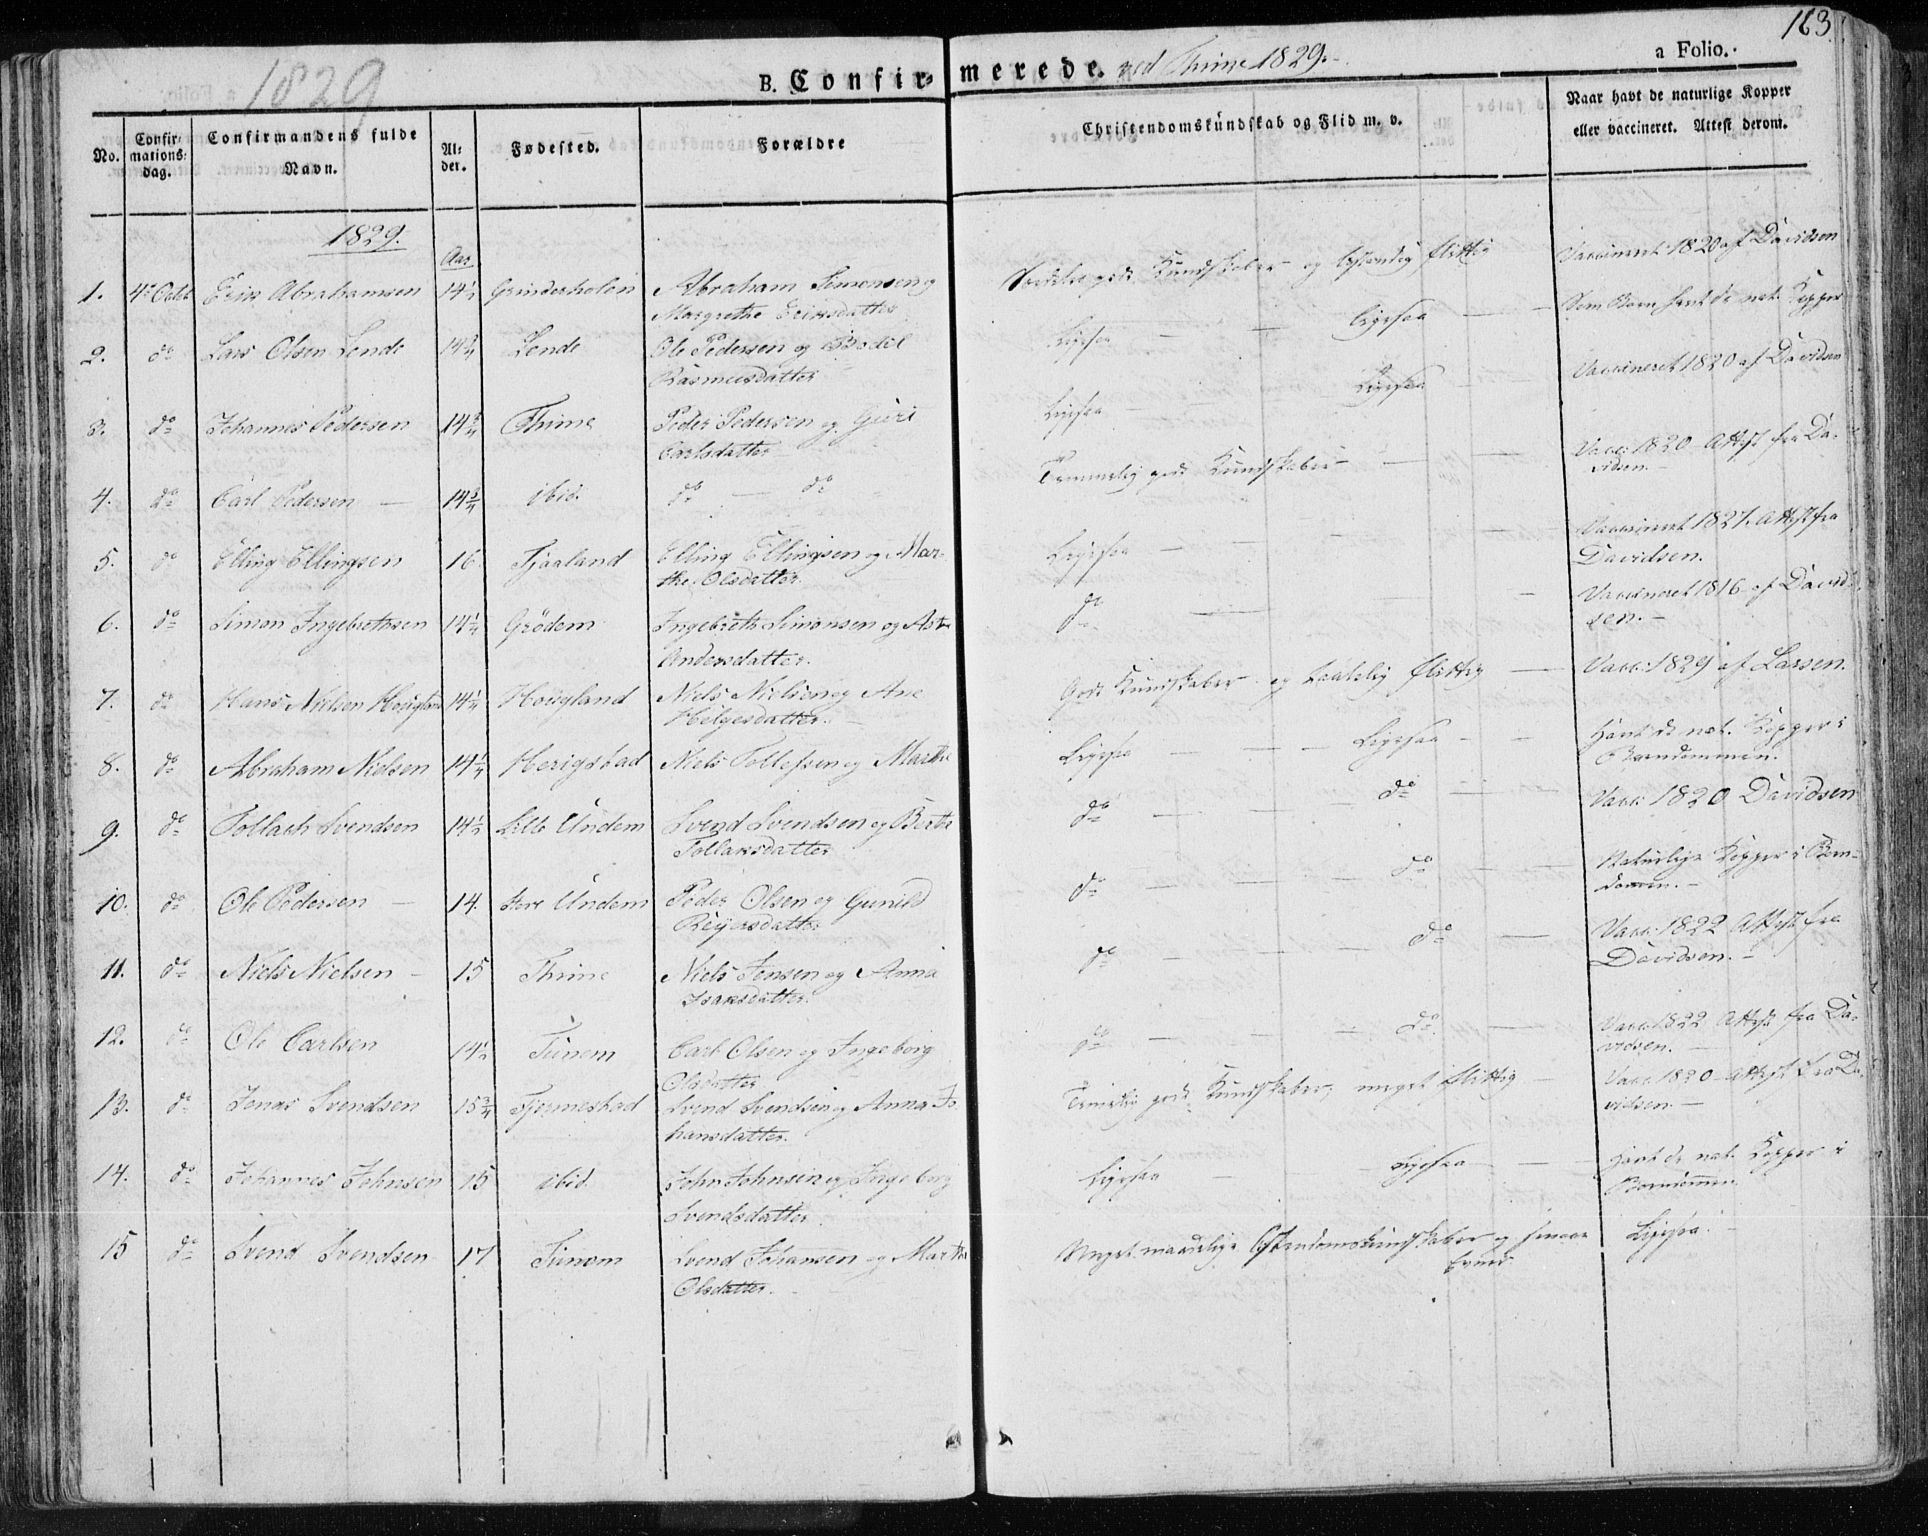 163
1829
B. Confirmerede. ved Thime 1829.
a Folio.
No.
Confirmations-dag.
Confirmandens fulde Navn.
Alder.
Fødested.
Forældre
Christendomskundskab og Flid m. v.
Naar havt de naturlige Kopper eller vaccineret. Attest derom.
1829.
Aar
1. 4de Octbr Erik Abrahamsen 14½ Grinderholen Abraham Simonsen og gode Kundskaber og bestandig flittig Vaccineret 1820 af Davidsen
Margrethe Eriksdatter
2. do Lars Olsen Lende 14¾ Lende Ole Pedersen og Bodil Ligesaa — — Ligesaa — Som Barn havt de nat. Kopper
Rasmusdatter
3. do Johannes Pedersen 14¾ Thime Peder Pedersen og Guri Ligesaa — Ligesaa — Vaccineret 1820 af Davidsen
Carlsdatter
4. do Carl Pedersen — 14¾ ibid. do — do Temmelig gode Kundskaber — Vacc: 1820 Attest fra Da-
vidsen.
5. do Elling Ellingsen 16. Tjaaland Elling Ellingsen og Mar- Ligesaa — — Vaccineret 1827. Attest fra
the Olsdatter. Davidsen.
6. do Simon Ingebrethsen 14¼ Grödem Ingebreth Simonsen og do — — Vaccineret 1816 af David-
Andersdatter. sen.
7. do Hans Nielsen Houglan 14¼ Hougland Niels Nielsen og Ane Gode Kundskaber og flittig — Vacc: 1829 af Larsen.
Helgesdatter.
8. do Abraham Nielsen 14¼ Herigstad Niels Tollefsen og Marthe Ligesaa — — Ligesaa — Havt de nat. Kopper i
Barndommen.
9. do Tollach Svendsen 14½ Lille Undem Svend Svendsen og Berte do — do — Vacc: 1820 Davidsen
Tollaksdatter
10. do Ole Pedersen — 14. Store Undem Peder Olsen og Gunild do — do — Naturlige Kopper i Barn-
Reijersdatter dommen.
11. do Niels Nielsen — 15 Thime Niels Jensen og Anna do — do — Vacc: 1822 Attest fra
Isaksdatter. Davidsen.
12. do Ole Carlsen 14½ Tunem Carl Olsen og Ingeborg do — do — Vacc: 1822 Attest fra Da-
Olsdatter vidsen.
13. do Jonas Svendsen 15¾ Tjemestad Svend Svendsen og Anna Jo- gode Kundskaber, meget flittig — Vacc. 1820 — Attest fra Da-
hansdatter. vidsen.
14. do Johannes Johnsen 15 ibid. John Johnsen og Ingeborg Ligesaa — Ligesaa — Havt de nat. Kopper i
Svendsdatter. Barndommen.
15 do Svend Svendsen 17 Tunem Svend Johansen og Marthe Meget maadelige Christendomskundskaber og Ligesaa
Olsdatter. Evner